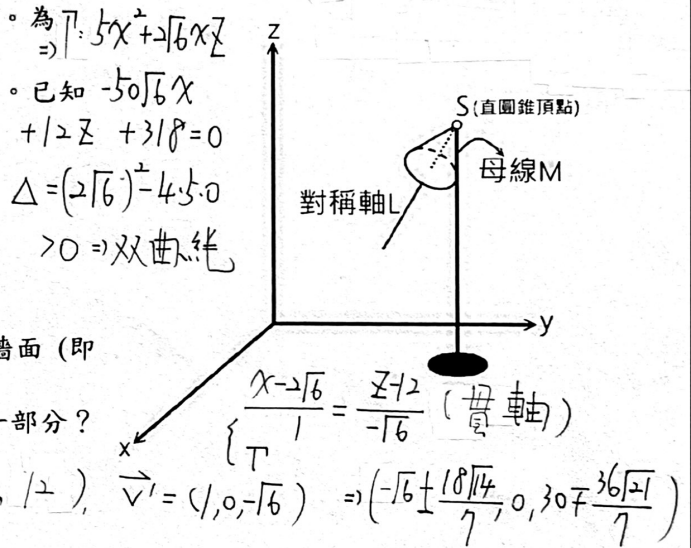 。為 Γ: 5x²+2√6xZ
=>
。已知 -50√6x
+12Z +318=0
△=(2√6)²-4·5·0
>0 => 双曲線
Z
S(直圓錐頂點)
母線M
對稱軸L
y
x
牆面 (即
部分?
{ (x-2√6)/1 = (Z-12)/(-√6) (貫軸)
Γ
, 12 ), v⃗' = (1,0,-√6) => (-√6±18√14/7, 0, 30∓36√21/7)